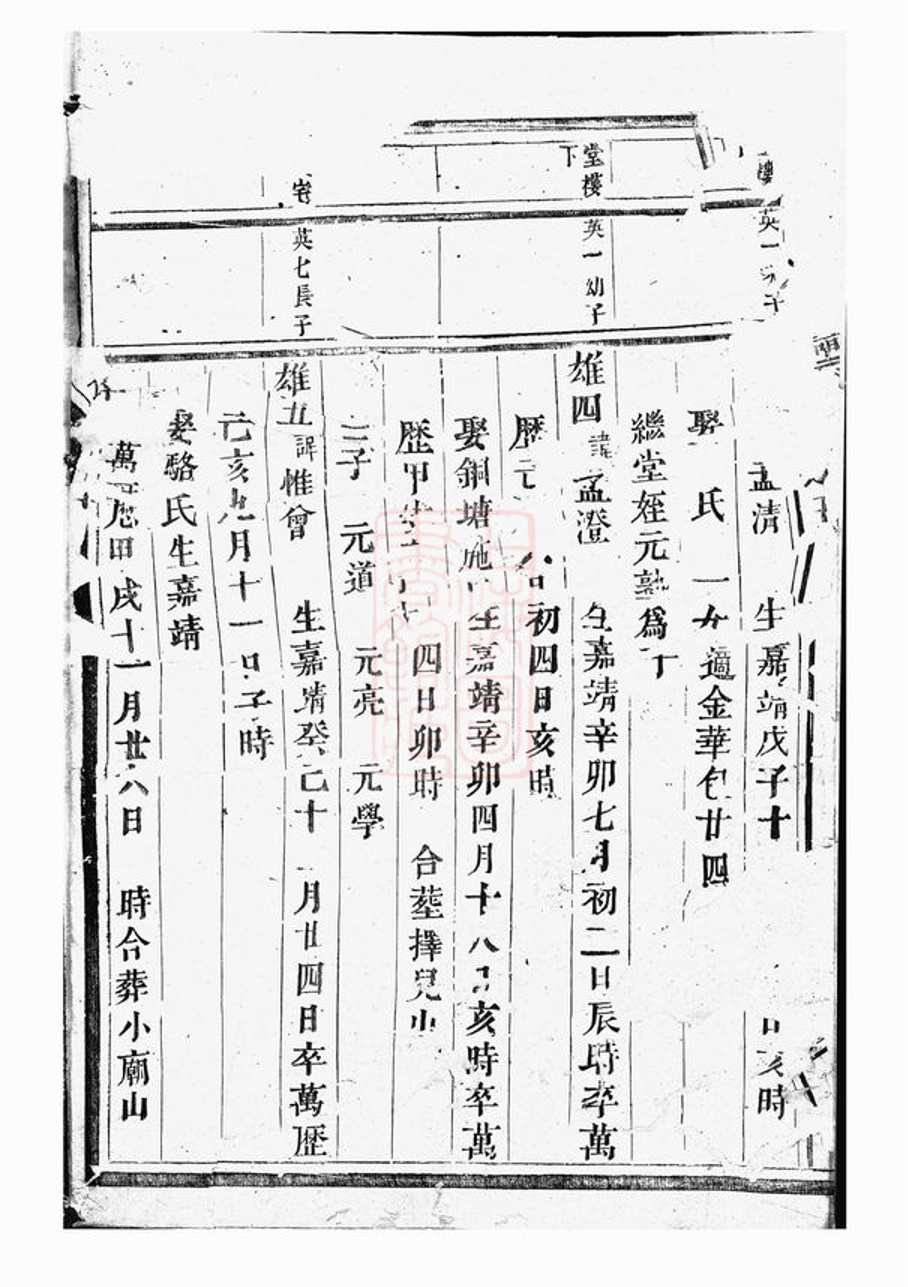 樓
英一 子
孟清 生嘉靖戊子十 日亥時
娶 氏 一女適金華包廿四
繼堂姪元勲爲
堂樓下
英一幼子
雄四 諱孟澄 生嘉靖辛卯七月初二日辰時卒萬
歷元 初四日亥時
娶銅塘施 生嘉靖辛卯四月十八日亥時卒萬
歷甲 四日卯時 合葬擇兒山
三子 元道 元亮 元學
宅
英七長子
雄五 諱惟曾 生嘉靖癸巳十 月廿四日卒萬歷
己亥九月十一日子時
娶駱氏生嘉靖
萬歷甲戌十一月廿六日 時合葬小廟山